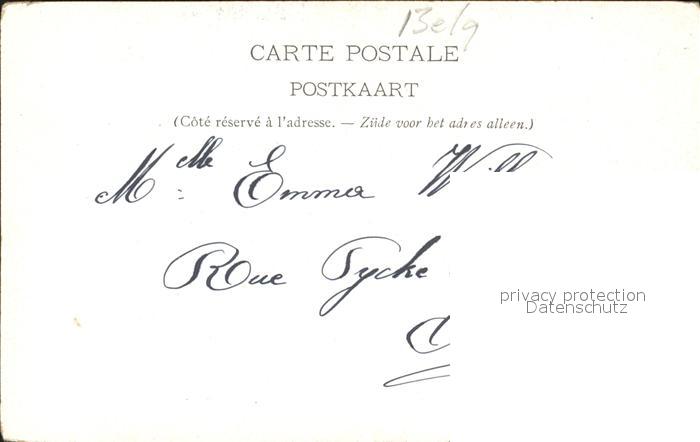 Belg
CARTE POSTALE
POSTKAART
(Côté réservé à l'adresse. — Zijde voor het adres alleen.)
Mlle Emma
Rue Tycke
privacy protection
Datenschutz